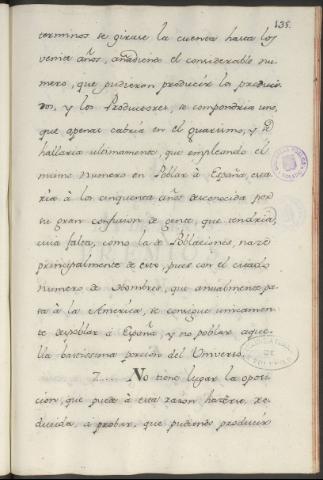 135.
terminos se girase la cuenta hasta los
veinte años, añadiendo el considerable nu-
mero, que pudieran producir los produci-
dos, y los Productores, se compondria uno,
que apenas cabria en el guarismo, y se
hallaria ultimamente, que empleando el
mismo numero en Poblar à España, esta-
ria à los cinquenta años desconocida por
su gran confusion de gente, que tendria,
cuia falta, como la de Poblaciones, nace
principalmente de esto, pues con el citado
numero de Hombres, que anualmente pa-
sa à la America, se consigue unicamen-
te despoblar à España, y no poblar aque-
lla bastissima porcion del Universo.
7.... No tiene lugar la oposi-
cion, que puede à esta razon hacerse, re-
ducida, à probar, que pudiendo producir